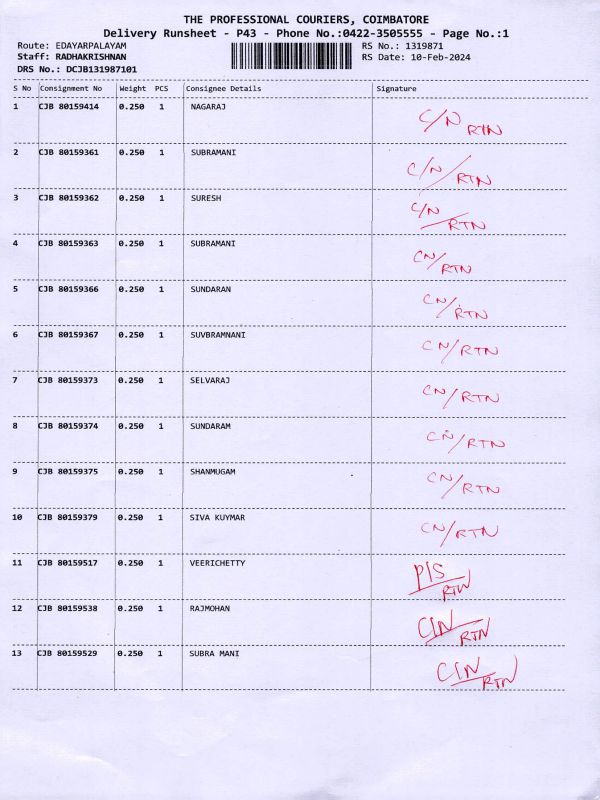 THE PROFESSIONAL COURIERS, COIMBATORE
Delivery Runsheet - P43 - Phone No.:0422-3505555 - Page No.:1
Route: EDAYARPALAYAM RS No.: 1319871
Staff: RADHAKRISHNAN RS Date: 10-Feb-2024
DRS No.: DCJB131987101
S No Consignment No Weight PCS Consignee Details Signature
1 CJB 80159414 0.250 1 NAGARAJ C/N RTN
2 CJB 80159361 0.250 1 SUBRAMANI C/N/RTN
3 CJB 80159362 0.250 1 SURESH C/N RTN
4 CJB 80159363 0.250 1 SUBRAMANI CN/RTN
5 CJB 80159366 0.250 1 SUNDARAN CN/RTN
6 CJB 80159367 0.250 1 SUVBRAMNANI CN/RTN
7 CJB 80159373 0.250 1 SELVARAJ CN/RTN
8 CJB 80159374 0.250 1 SUNDARAM CN/RTN
9 CJB 80159375 0.250 1 SHANMUGAM CN/RTN
10 CJB 80159379 0.250 1 SIVA KUYMAR CN/RTN
11 CJB 80159517 0.250 1 VEERICHETTY P/S RTN
12 CJB 80159538 0.250 1 RAJMOHAN C/N RTN
13 CJB 80159529 0.250 1 SUBRA MANI C/N RTN